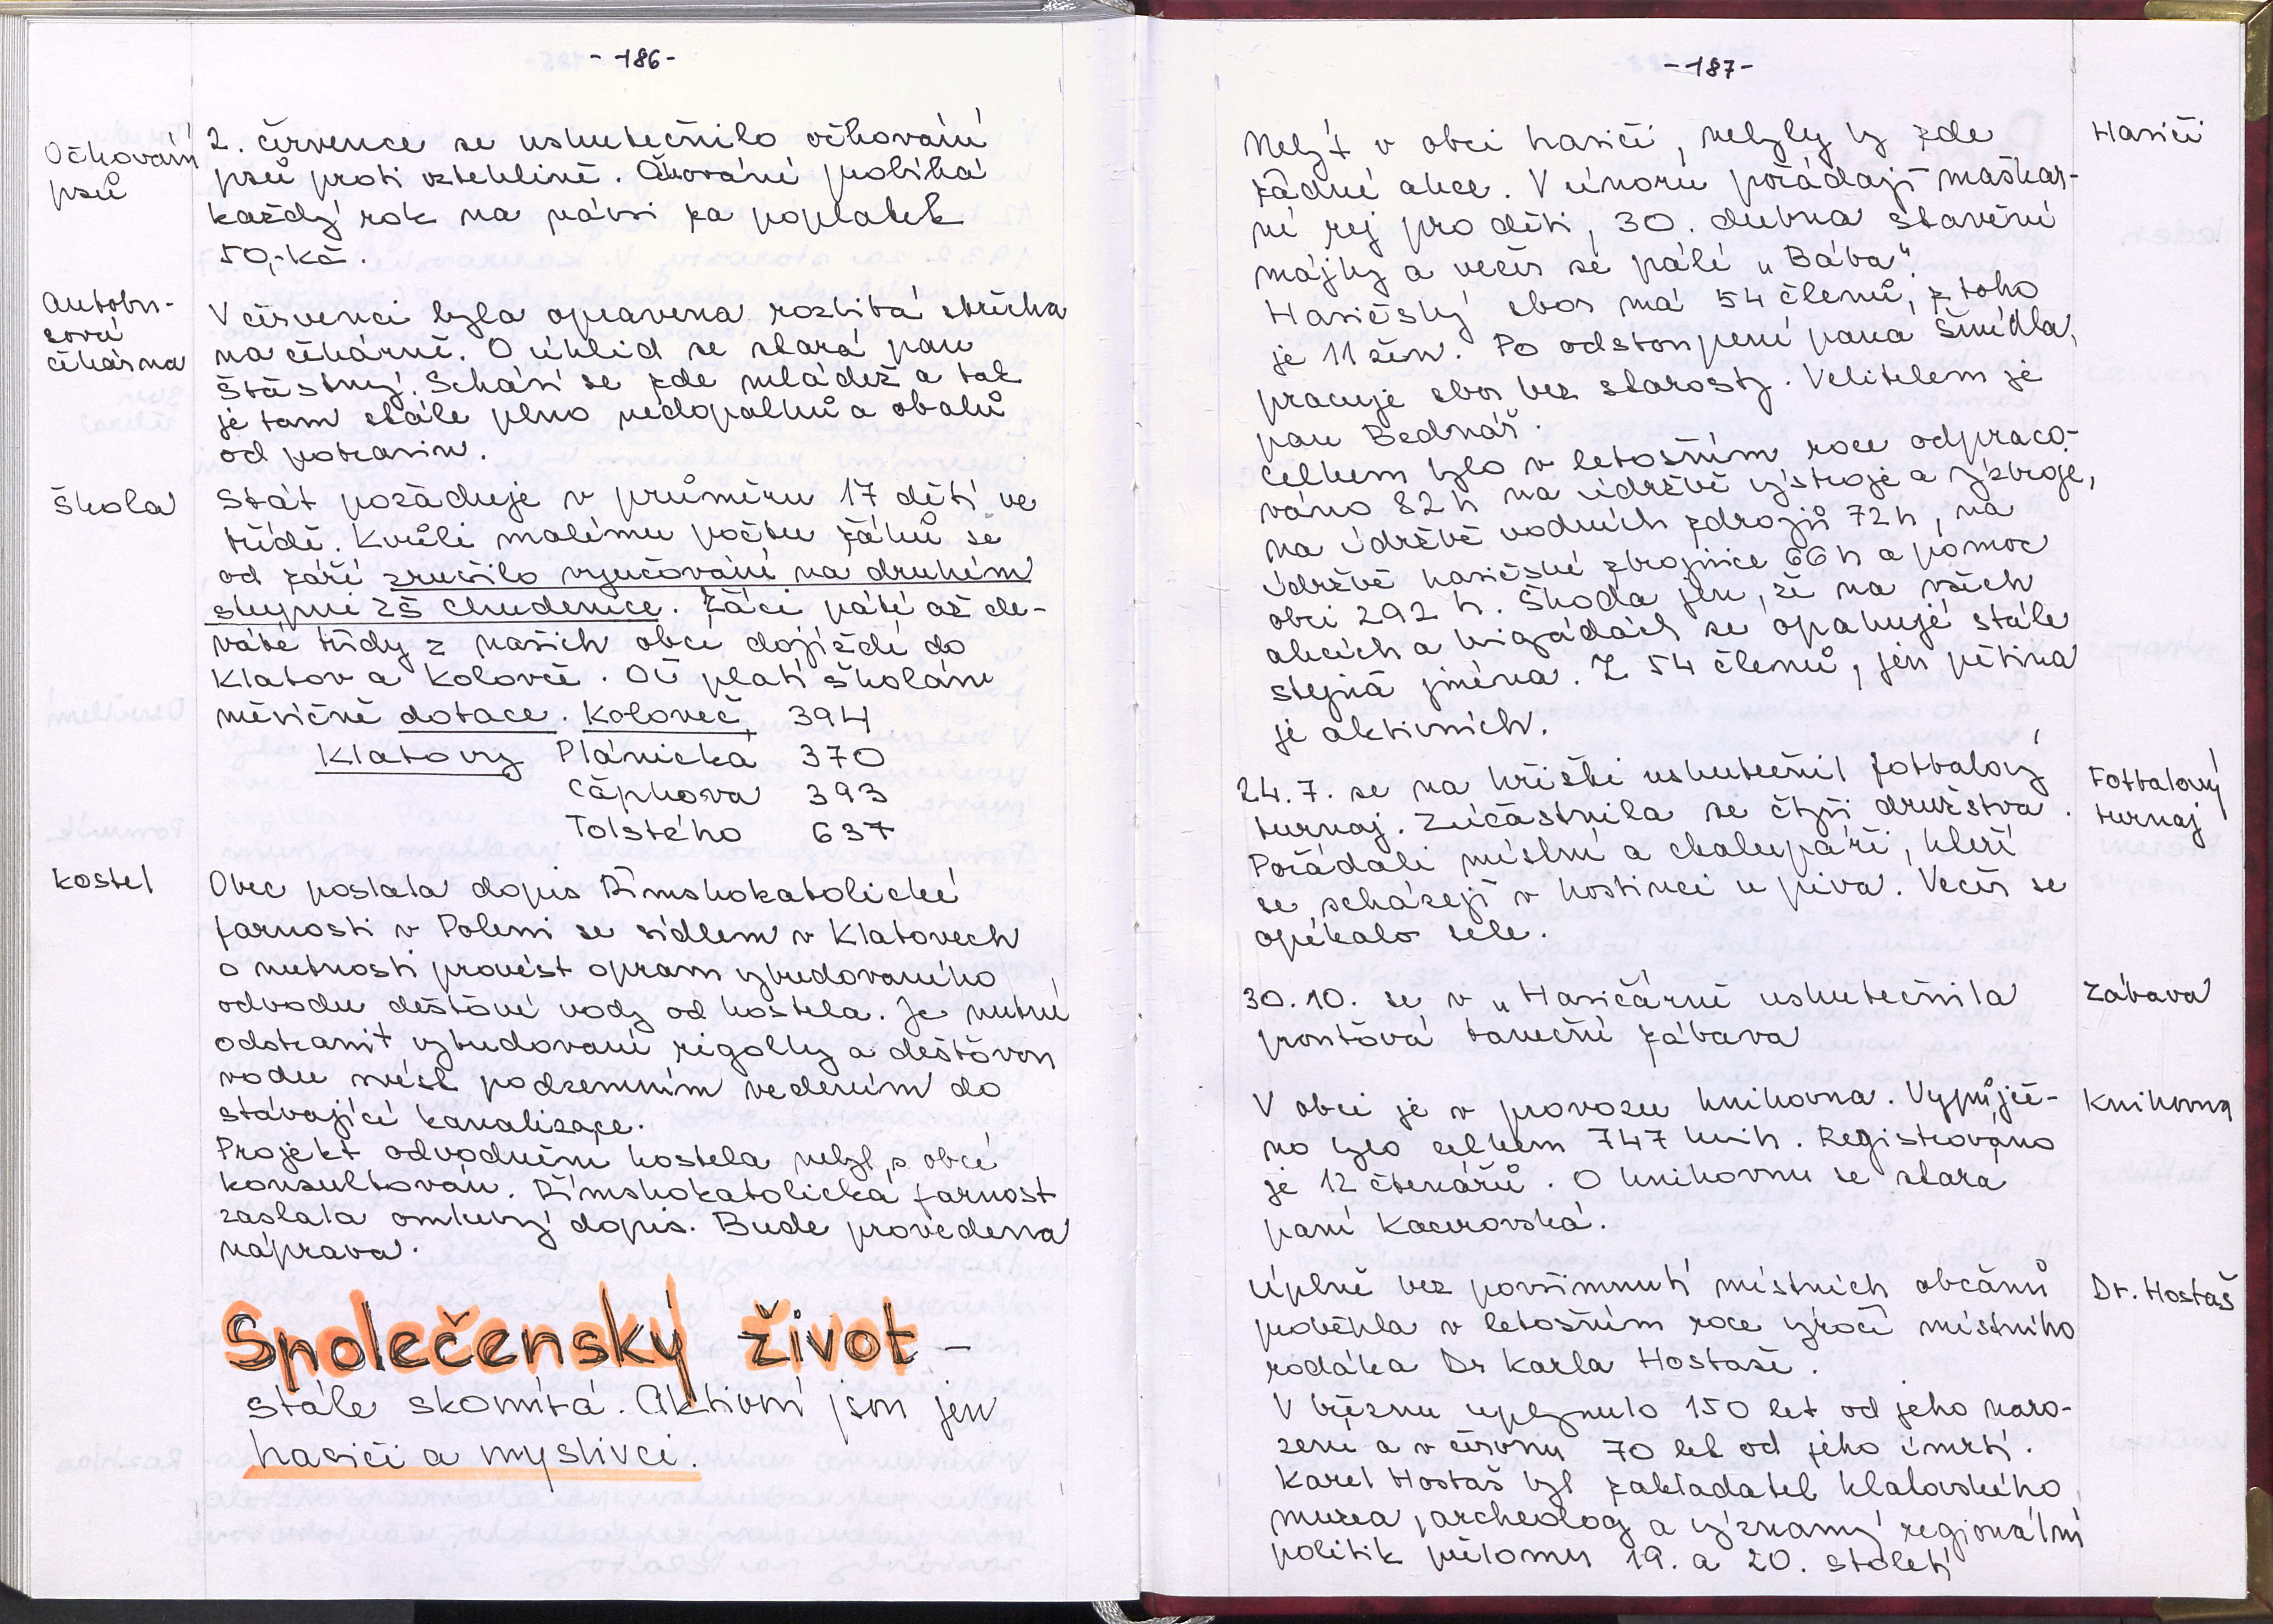 - 186 -
Očkování
psů
2. července se uskutečnilo očkování
psů proti vzteklině. Očkování probíhá
každý rok na návsi za poplatek
50,- kč.
Autobu-
sová
čekárna
V červenci byla opravena rozbitá střecha
na čekárně. O úklid se stará pan
Šťastný. Schází se zde mládež a tak
je tam stále plno nedopalků a obalů
od potravin.
Škola
Stát požaduje v průměru 17 dětí ve
třídě. Kvůli malému počtu žáků se
od září zrušilo vyučování na druhém
stupni ZŠ Chudenice. Žáci páté až de-
váté třídy z našich obcí dojíždí do
Klatov a Kolovče. OÚ platí školám
měsíčně dotace. Koloveč 394
Klatovy Plánická 370
Čapkova 393
Tolstého 637
Kostel
Obec poslala dopis Římskokatolické
farnosti v Poleni se sídlem v Klatovech
o nutnosti provést opravu vybudovaného
odvodu dešťové vody od kostela. Je nutné
odstranit vybudované rigolky a dešťovou
vodu svést podzemním vedením do
stávající kanalizace.
Projekt odvodnění kostela nebyl s obcí
konsultován. Římskokatolická farnost
zaslala omluvný dopis. Bude provedena
náprava.
Společenský život -
stále skomírá. Aktivní jsou jen
hasiči a myslivci.
- 187 -
Nebýt v obci hasiči, nebyly by zde
žádné akce. V únoru pořádají maškar-
ní rej pro děti, 30. dubna stavění
májky a večer se pálí „Bába".
Hasičský sbor má 54 členů, z toho
je 11 žen. Po odstoupení pana Šmídla,
pracuje sbor bez starosty. Velitelem je
pan Bednář.
Celkem bylo v letošním roce odpraco-
váno 82 h na údržbě výstroje a výzbroje,
na údržbě vodních zdrojů 72 h, na
údržbě hasičské zbrojnice 66 h a pomoc
obci 292 h. Škoda jen, že na všech
akcích a brigádách se opakuje stále
stejná jména. Z 54 členů, jen pětina
je aktivních.
Hasiči
24.7. se na hřišti uskutečnil fotbalový
turnaj. Zúčastnila se čtyři družstva.
Pořádali místní a chalupáři, kteří
se scházejí v hostinci u piva. Večer se
opékalo sele.
Fotbalový
turnaj
30.10. se v „Hasičárně uskutečnila
pouťová taneční zábava
Zábava
V obci je v provozu knihovna. Vypůjče-
no bylo celkem 747 knih. Registrováno
je 12 čtenářů. O knihovnu se stará
paní Kacerovská.
Knihovna
Úplně bez povšimnutí místních občanů
proběhla v letošním roce výročí místního
rodáka Dr Karla Hostaše.
V březnu uplynulo 150 let od jeho naro-
zení a v červnu 70 let od jeho úmrtí.
Karel Hostaš byl zakladatel klatovského
muzea, archeolog a významný regionální
politik přelomu 19. a 20. století
Dr. Hostaš